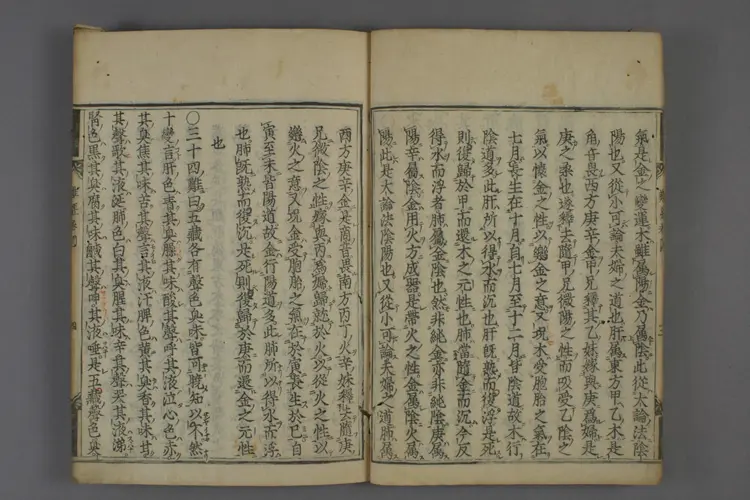 氣是金之變運木雖屬陽金乃屬陰此從大論法陰
陽也又從小可論夫婦之道也肝屬東方甲乙木是
角音畏西方庚辛金甲兄釋其乙妹嫁與庚爲婦是
庚之柔也遂釋去隨甲兄微陽之性而吸受乙陰之
氣以懷金之性以戀金之意又況木受胞胎之氣在
七月長生在十月自七月至十二月皆陰道故木行
陰道多此肝所以得水而沉也肝既熟而復浮是死
則從歸於甲而還木之元性也肺當隨金而沉今反
得水而浮者肺屬金陰也然非純金亦非純陰庚屬
陽辛屬陰金用火方成器是帶火之性金屬陰火屬
陽此是大論法陰陽也又從小可論夫婦之道肺屬
西方庚辛金是商音畏南方丙丁火辛妹釋去隨庚
兄微陰之性嫁與丙爲婦歸就於火以從火之性以
戀火之意又況金受胞胎之氣在於寅長生於巳自
寅至未皆陽道故金行陽道多此肺所以得水而浮
也肺既熟而復沉是死則復歸於庚而還金之元性
也
〇三十四難曰五藏各有聲色臭味皆可曉知以不然
十變言肝色青其臭臊其味酸其聲呼其液泣心色赤
其臭焦其味苦其聲言其液汗脾色黃其臭香其味甘
其聲歌其液涎肺色白其臭腥其味辛其聲哭其液涕
腎色黑其臭腐其味鹹其聲呻其液唾是五藏聲色臭